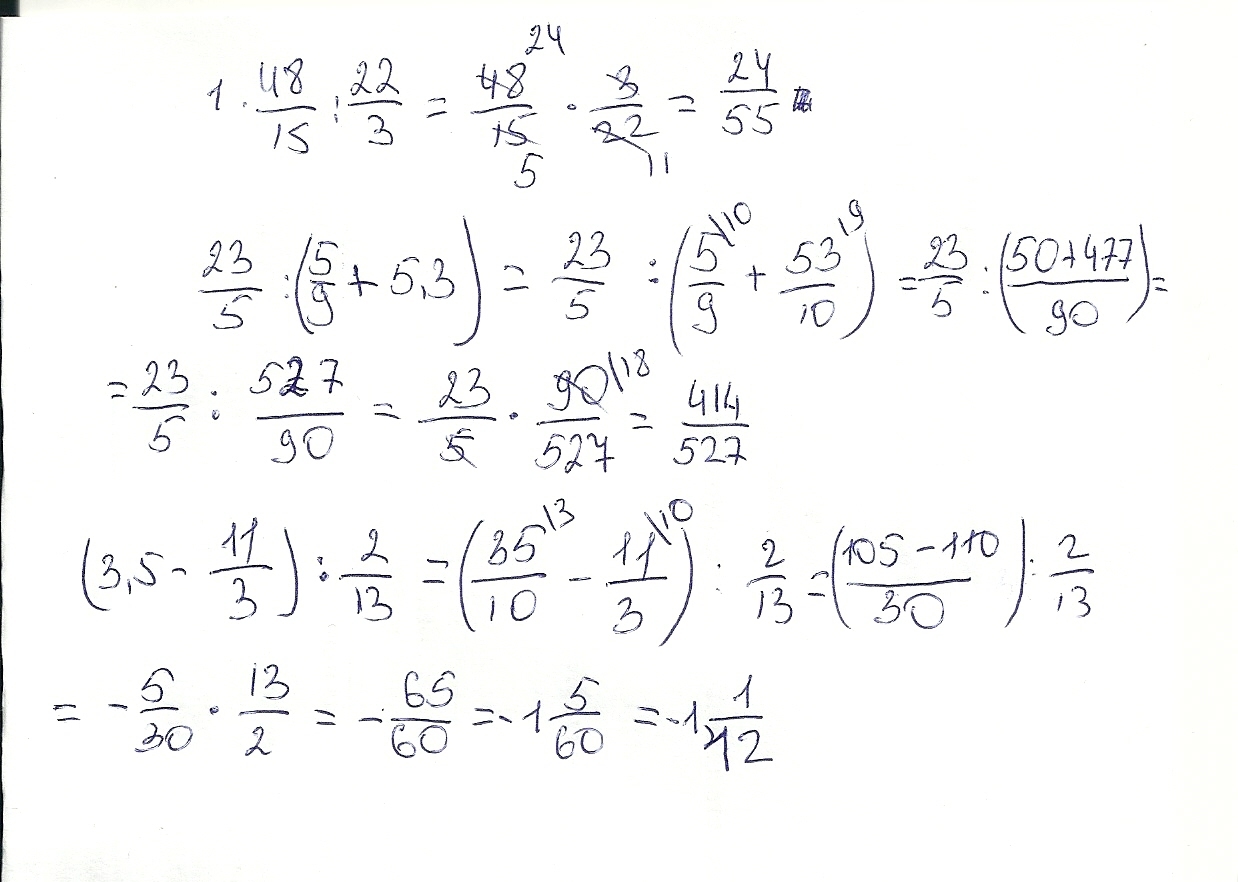 1. 48/15 : 22/3 = 48/15 · 3/22 = 24/55 24 5 11
23/5 : (5/9 + 5,3) = 23/5 : (5/9 \10 + 53/10 \9) = 23/5 : ((50+477)/90) =
= 23/5 : 527/90 = 23/5 · 90/527 \18 = 414/527
(3,5 - 11/3) : 2/13 = (35/10 \3 - 11/3 \10) : 2/13 = ((105-110)/30) : 2/13
= -5/30 · 13/2 = -65/60 = -1 5/60 = -1 1/12